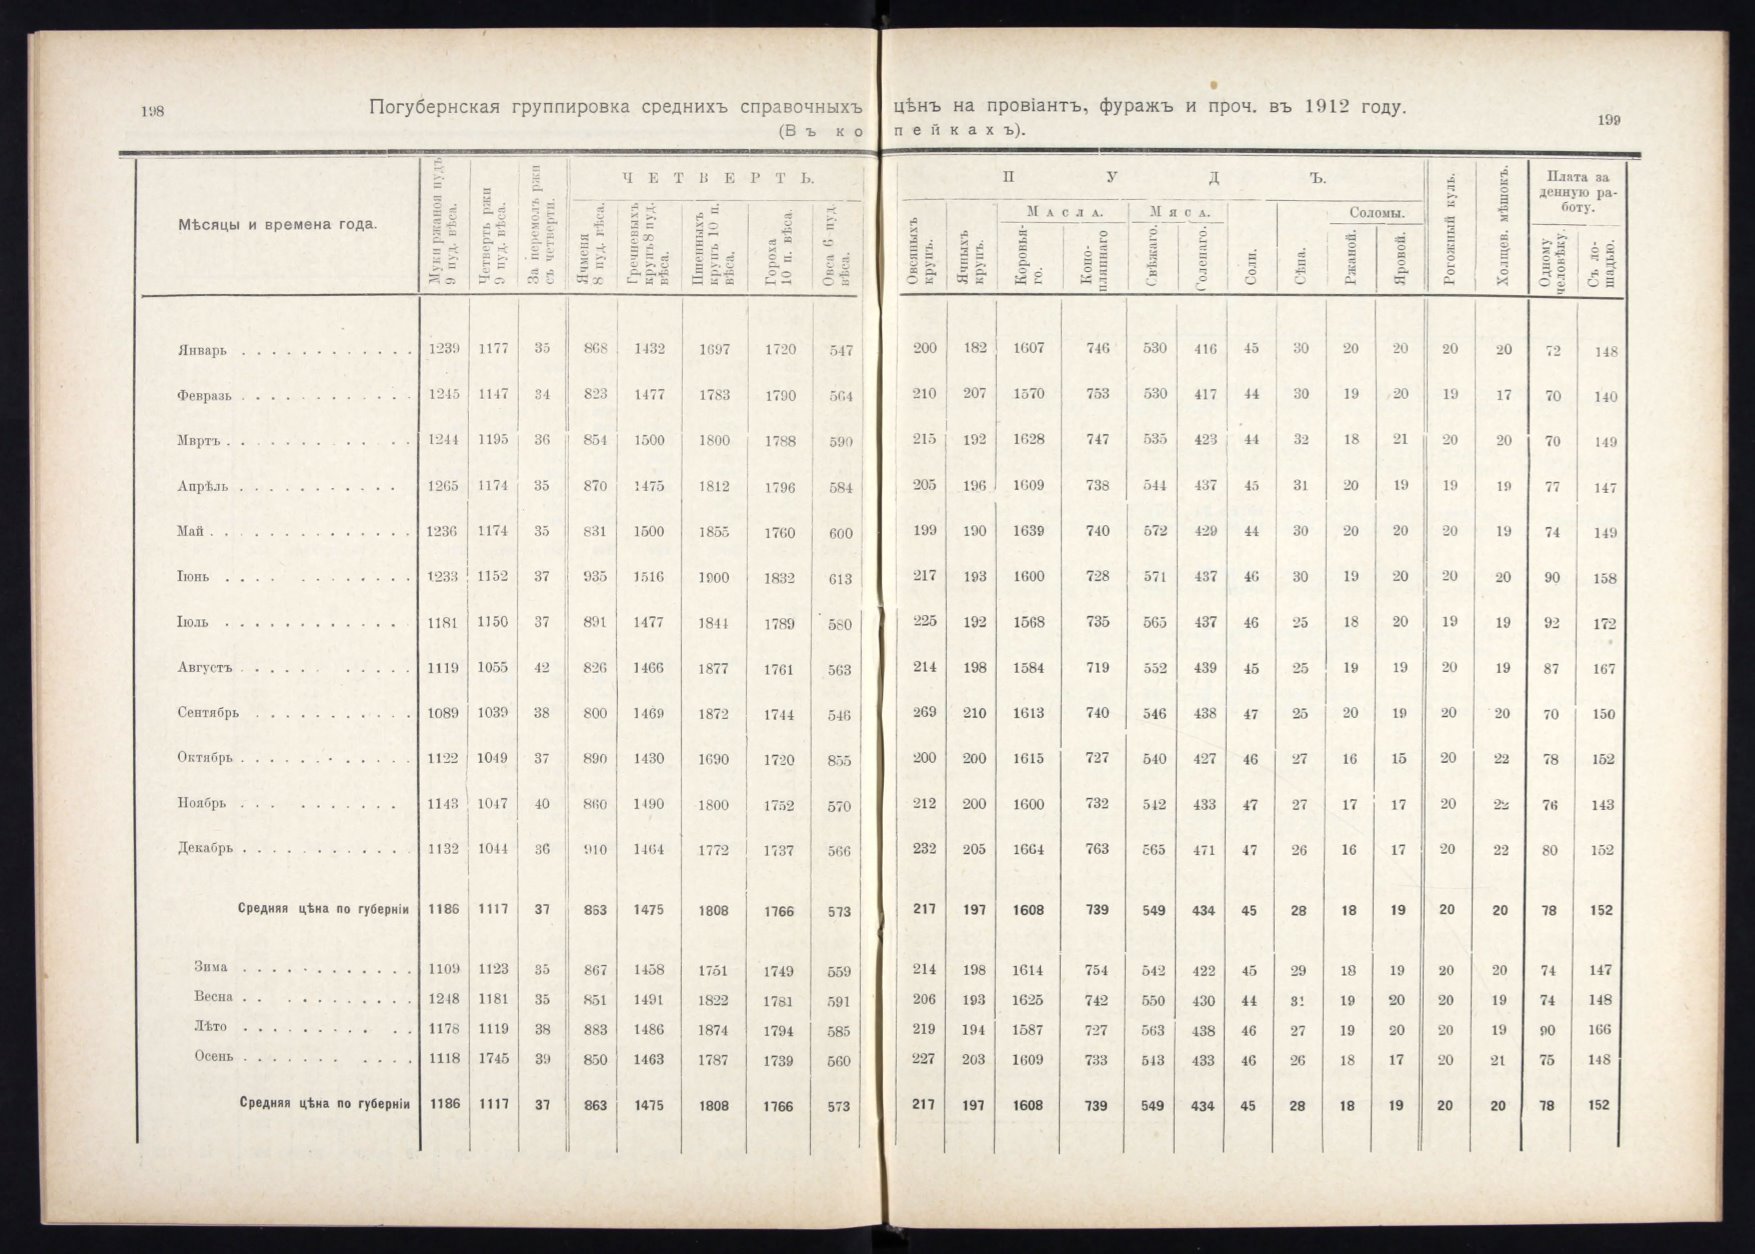 198
Погубернская группировка среднихъ справочныхъ цѣнъ на провіантъ, фуражъ и проч. въ 1912 году.
199
(Въ копейкахъ).
Мѣсяцы и времена года.
Муки ржаной пудъ 9 пуд. вѣса.
Четверть ржи 9 пуд. вѣса.
За перемолъ ржи съ четверти.
ЧЕТВЕРТЬ.
Ячменя 8 пуд. вѣса.
Гречневыхъ крупъ 8 пуд. вѣса.
Пшенныхъ крупъ 10 п. вѣса.
Гороха 10 п. вѣса.
Овса 6 пуд. вѣса.
ПУДЪ.
Овсяныхъ крупъ.
Ячныхъ крупъ.
Масла.
Коровья-го.
Коно-пляннаго
Мяса.
Свѣжаго.
Соленаго.
Соли.
Сѣна.
Соломы.
Ржаной.
Яровой.
Рогожный куль.
Холщев. мѣшокъ.
Плата за денную ра-боту.
Одному человѣку.
Съ ло-шадью.
Январь 1239 1177 35 868 1432 1697 1720 547 200 182 1607 746 530 416 45 30 20 20 20 20 72 148
Февразь 1245 1147 34 823 1477 1783 1790 564 210 207 1570 753 530 417 44 30 19 20 19 17 70 140
Мвртъ 1244 1195 36 854 1500 1800 1788 590 215 192 1628 747 535 423 44 32 18 21 20 20 70 149
Апрѣль 1265 1174 35 870 1475 1812 1796 584 205 196 1609 738 544 437 45 31 20 19 19 19 77 147
Май 1236 1174 35 831 1500 1855 1760 600 199 190 1639 740 572 429 44 30 20 20 20 19 74 149
Іюнь 1233 1152 37 935 1516 1900 1832 613 217 193 1600 728 571 437 46 30 19 20 20 20 90 158
Іюль 1181 1150 37 891 1477 1844 1789 580 225 192 1568 735 565 437 46 25 18 20 19 19 92 172
Августъ 1119 1055 42 826 1466 1877 1761 563 214 198 1584 719 552 439 45 25 19 19 20 19 87 167
Сентябрь 1089 1039 38 800 1469 1872 1744 546 269 210 1613 740 546 438 47 25 20 19 20 20 70 150
Октябрь 1122 1049 37 890 1430 1690 1720 855 200 200 1615 727 540 427 46 27 16 15 20 22 78 152
Ноябрь 1143 1047 40 860 1490 1800 1752 570 212 200 1600 732 542 433 47 27 17 17 20 22 76 143
Декабрь 1132 1044 36 910 1464 1772 1737 566 232 205 1664 763 565 471 47 26 16 17 20 22 80 152
Средняя цѣна по губерніи 1186 1117 37 863 1475 1808 1766 573 217 197 1608 739 549 434 45 28 18 19 20 20 78 152
Зима 1109 1123 35 867 1458 1751 1749 559 214 198 1614 754 542 422 45 29 18 19 20 20 74 147
Весна 1248 1181 35 851 1491 1822 1781 591 206 193 1625 742 550 430 44 31 19 20 20 19 74 148
Лѣто 1178 1119 38 883 1486 1874 1794 585 219 194 1587 727 563 438 46 27 19 20 20 19 90 166
Осень 1118 1745 39 850 1463 1787 1739 560 227 203 1609 733 543 433 46 26 18 17 20 21 75 148
Средняя цѣна по губерніи 1186 1117 37 863 1475 1808 1766 573 217 197 1608 739 549 434 45 28 18 19 20 20 78 152